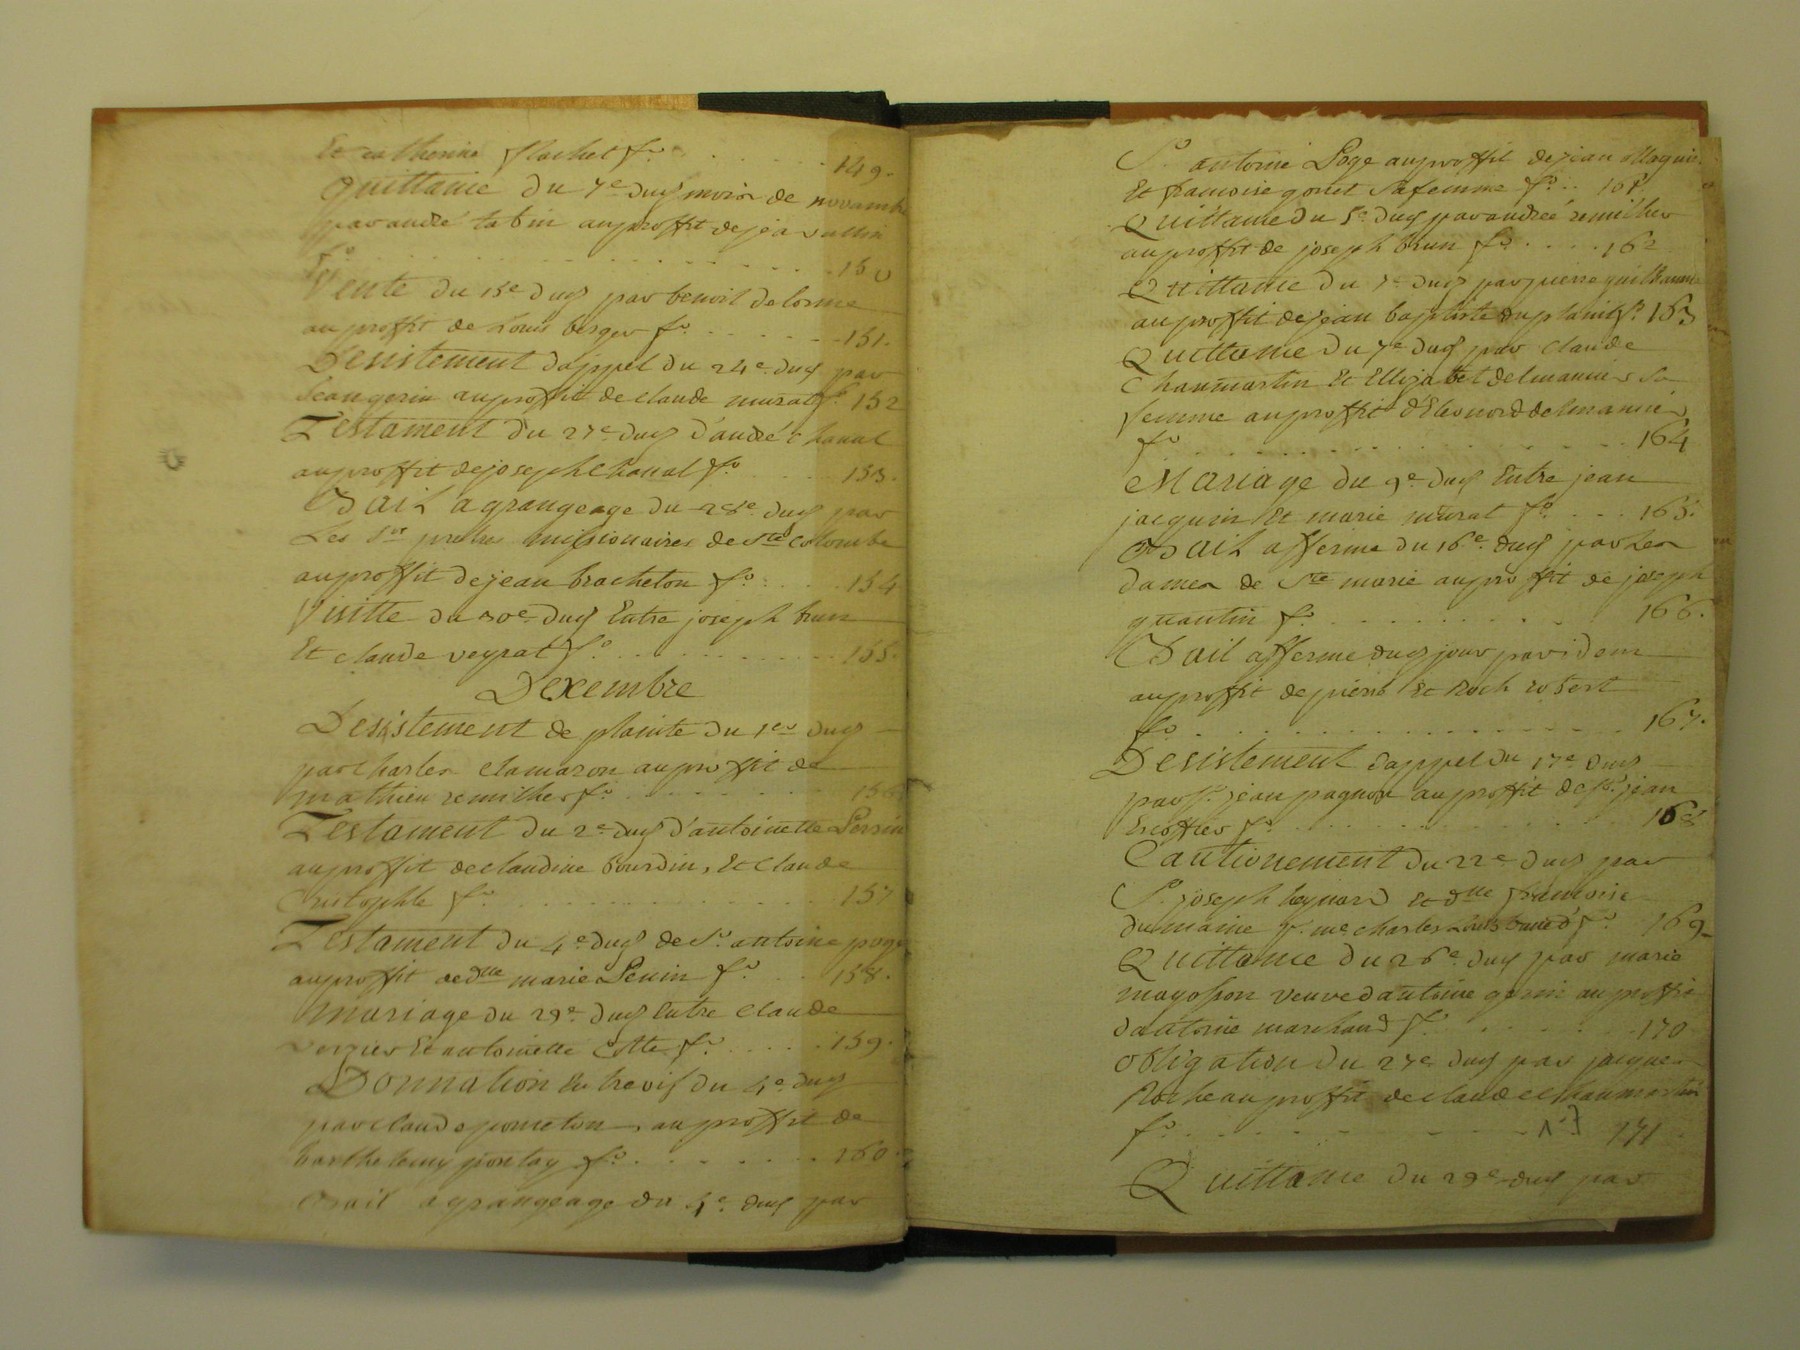 Et catherine flachet f.o . . . . . . 149.
Quittance du 7e. dud mois de novembre
par andré tabin au proffit de jean
f.o . . . . . . . . . . . 150
Vente du 15e dud par benoit delorme
au proffit de Louis berger f.o . . . . . 151.
Desistement d'appel du 24e. dud par
au proffit de claude murat f.o 152
Testament du 27e dud d'andré chaval
au proffit de joseph chaval f.o . . . . 153.
Bail a grangeage du 28e. dud par
Les Srs. pretres missionaires de Ste Colombe
au proffit de jean bracheton f.o . . . . 154
Visitte du 30e dud Entre joseph brun
Et claude veyrat f.o . . . . . . . . 155.
Dexembre
Desistement de plainte du 1er dud
par charles clamaron au proffit de
mathieu remilher f.o . . . . . . . . 156
Testament du 2e dud d'antoinette
au proffit de claudine bourdin, Et Claude
Cristophle f.o . . . . . . . . . 157
Testament du 4e dud de Sr. antoine
au proffit de dlle marie f.o . . . 158.
Mariage du 29e. dud Entre claude
verzier Et antoinette f.o . . . . . 159.
Donnation Entrevif du 4e. dud
par claude pometon, au proffit de
barthelemy f.o . . . . . . . 160.
Bail a grangeage du 4e. dud par
Sr. antoine Loge au proffit de jean
Et francoise gonet sa femme f.o . . 161
Quittance du 5e. dud par andréé remilher
au proffit de joseph brun f.o . . . . 162
Quittance du 7e. dud par pierre
au proffit de jean baptiste f.o 163
Quittance du 7e dud par claude
Chaumartin Et Elizabet sa
femme au proffit
f.o . . . . . . . . . . . 164
Mariage du 9e. dud Entre jean
jacquin Et marie murat f.o . . . 165.
Bail afferme du 16e. dud par Les
dames de Ste marie au proffit de joseph
quantin f.o . . . . . . . . . 166.
Bail afferme dud jour par idem
au proffit de pierre Et Roch robert
f.o . . . . . . . . . . . 167.
Desistement d'appel du 17e dud
par Sr. jean pagnon au proffit de Sr. jean
Escoffier f.o . . . . . . . . . 168
Cautionement du 22e dud par
Sr. joseph Et dlle francoise
dumaine me charles Louis f.o . 169
Quittance du 26e. dud par marie
veuve d'antoine au proffit
d'antoine marchand f.o . . . . . . 170
obligation du 27e dud par jacques
Roche au proffit de claude chaumartin
f.o . . . . . . . . . . . 171
Quittance du 29e dud par